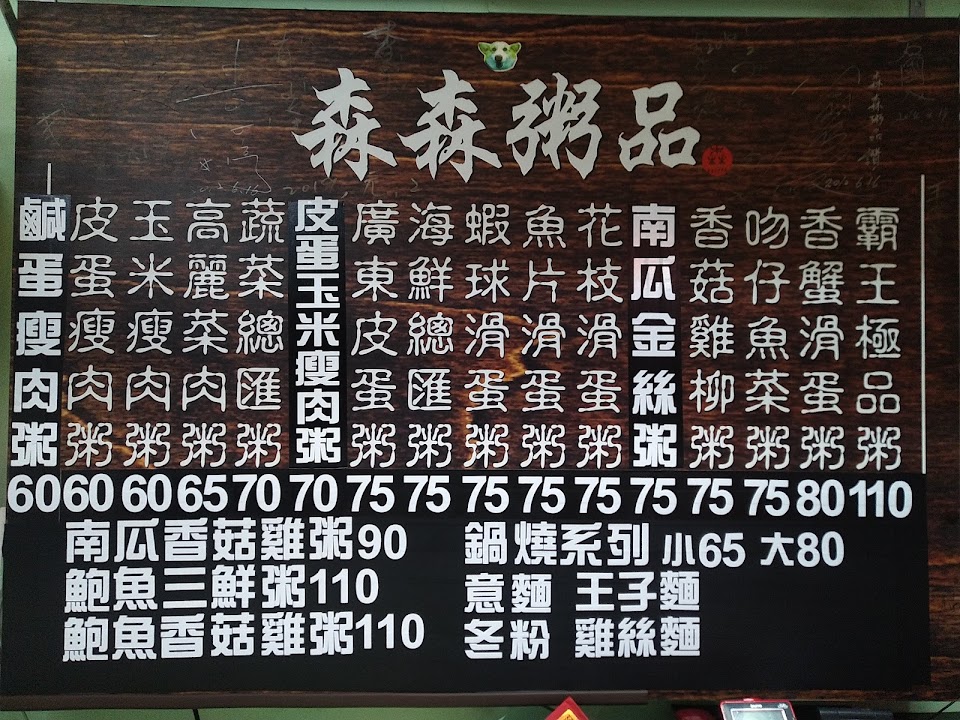 森森粥品
鹹蛋瘦肉粥 60
皮蛋瘦肉粥 60
玉米瘦肉粥 60
高麗菜肉粥 65
蔬菜總匯粥 70
皮蛋玉米瘦肉粥 70
廣東皮蛋粥 75
海鮮總匯粥 75
蝦球滑蛋粥 75
魚片滑蛋粥 75
花枝滑蛋粥 75
南瓜金絲粥 75
香菇雞柳粥 75
吻仔魚菜粥 75
香蟹滑蛋粥 80
霸王極品粥 110
南瓜香菇雞粥90
鮑魚三鮮粥110
鮑魚香菇雞粥110
鍋燒系列 小65 大80
意麵 王子麵
冬粉 雞絲麵